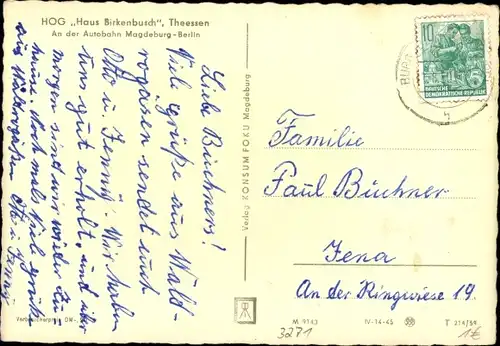 HOG „Haus Birkenbusch“, Theessen
An der Autobahn Magdeburg-Berlin
Liebe Büchners!
Viele Grüße aus Wald-
rogäsen sendet euch
Otto u. Jenny. Wir haben
uns gut erholt, und über
morgen sind wir wieder zu
hause. Noch mals viele grüße
aus
Otto u. Jenny
Verlag KONSUM FOKU Magdeburg
10
DEUTSCHE
DEMOKRATISCHE REPUBLIK
BURG
h
Familie
Paul Büchner
Jena
An der Ringwiese 19.
M 9143
IV-14-45
T 214/59
3271
1€